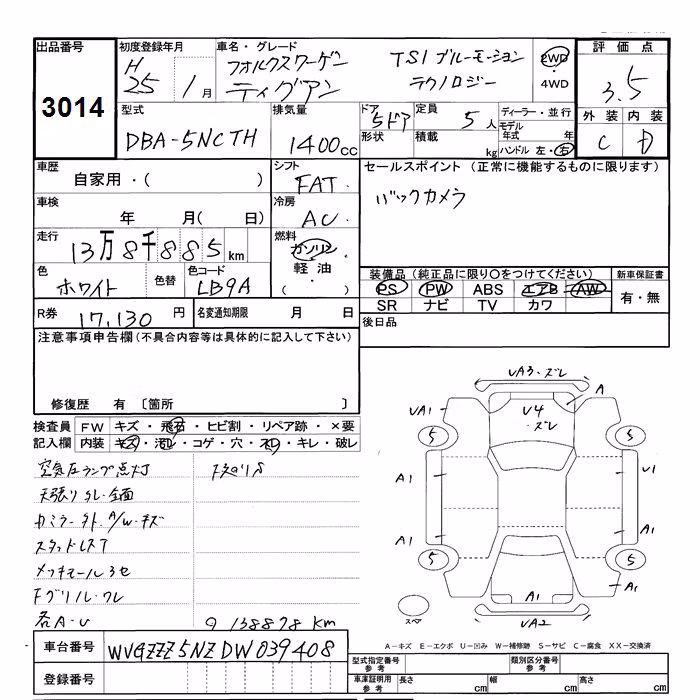 出品番号
3014
初度登録年月
H
25 1月
車名・グレード
フォルクスワーゲン TSI ブルーモーション
ティグアン テクノロジー
2WD
・
4WD
評価点
3.5
外装 内装
C D
型式
DBA-5NCTH
排気量
1400cc
ドア
5ドア
形状
定員
5人
積載
kg
ディーラー・並行
モデル
年式 年
ハンドル 左・右
車歴
自家用・( )
シフト
FAT
セールスポイント(正常に機能するものに限ります)
バックカメラ
車検
年 月( 日)
冷房
AC
走行
13万8千885km
燃料
ガソリン
軽油・
( )
色
ホワイト
色替
色コード
LB9A
装備品(純正品に限り〇をつけてください)
PS PW ABS エアB AW
SR ナビ TV カワ
新車保証書
有・無
R券
17,130円
名変通知期限 月 日
後日品
注意事項申告欄(不具合内容等は具体的に記入して下さい)
修復歴 有〔箇所 〕
検査員
記入欄
FW キズ・飛石・ヒビ割・リペア跡・×要
内装 キズ・汚レ・コゲ・穴・スレ・キレ・破レ
空気圧ランプ点灯
天張りタレ・全面
カミラー外、A/W・キズ
スタッドレスT
Fグリル・ワレ
各A・U
138878km
UA3・ズレ
A
UA1
U4
・ズレ
5
5
A1
U1
A1
A1
5
5
A1
A1
UA2
スペア
A-キズ E-エクボ U-凹み W-補修跡 S-サビ C-腐食 XX-交換済
車台番号
WVGZZZ5NZDW039408
登録番号
型式指定番号
参考
類別区分番号
参考
車庫証明用
参考
長さ
cm
幅
cm
高さ
cm